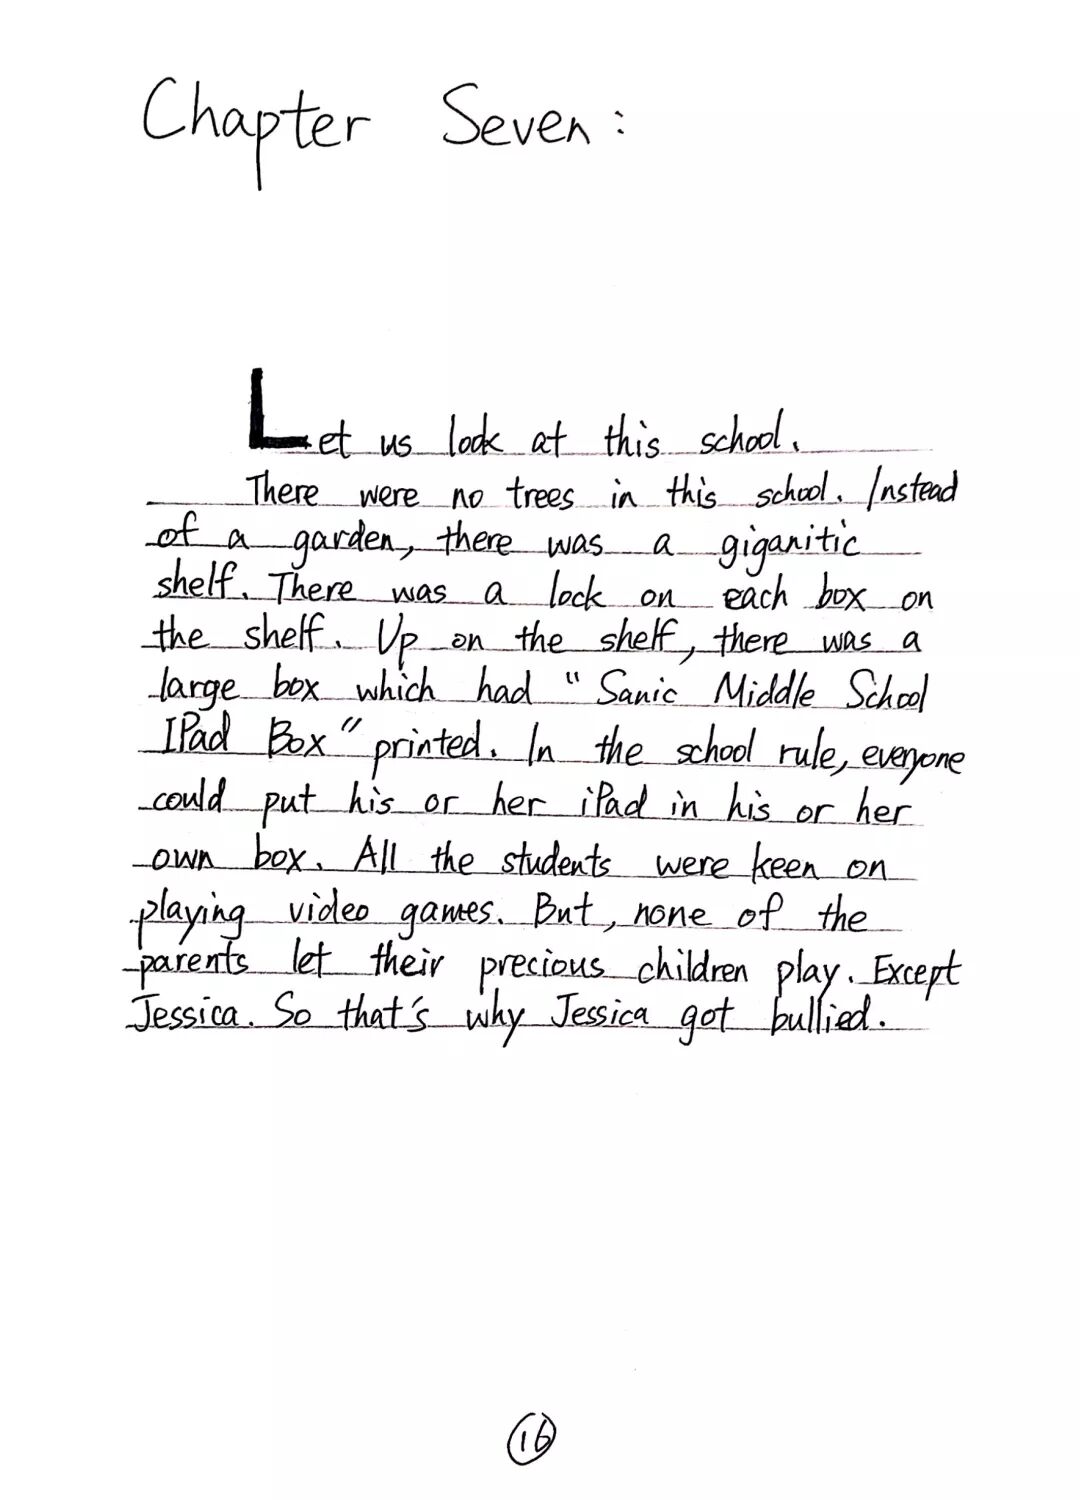 Chapter Seven:
Let us look at this school.
There were no trees in this school. Instead
of a garden, there was a giganitic
shelf. There was a lock on each box on
the shelf. Up on the shelf, there was a
large box which had "Sanic Middle School
IPad Box" printed. In the school rule, everyone
could put his or her iPad in his or her
own box. All the students were keen on
playing video games. But, none of the
parents let their precious children play. Except
Jessica. So that's why Jessica got bullied.
16